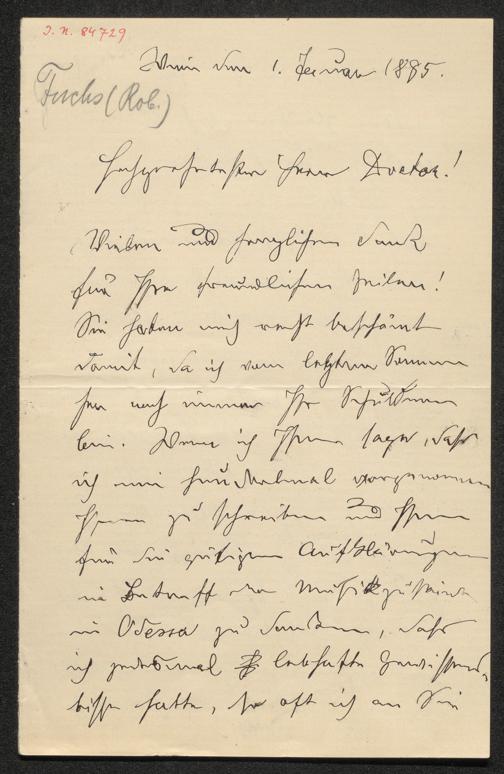 I. N. 84729
Wien den 1. Jenuar 1895.
Fuchs (Rob.)
Hochgeehrtester Herr Doctor!
Vielen und herzlichen Dank
für Ihre freundlichen Zeilen!
Sie haben mich recht beschämt
damit, da ich vom letzten Sommer
her noch immer Ihr Schuldner
bin. Wenn ich Ihnen sage, daß
ich mir hundertmal vorgenommen
Ihnen zu schreiben und Ihnen
für die gütigen Aufklärungen
in Betreff der Musikzustände
in Odessa zu danken, daß
ich jedesmal lebhafte Gewissens-
bisse hatte, so oft ich an Sie